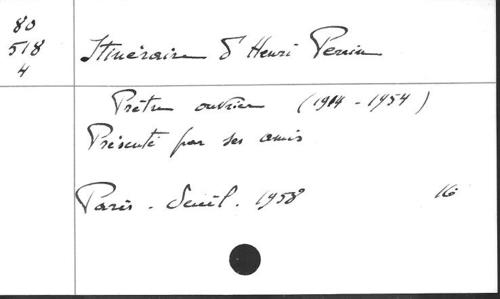 80
518
4
Itinéraire d'Henri Perrin
Prêtre ouvrier (1914-1954)
Présenté par ses amis
Paris. Seuil. 1958 16